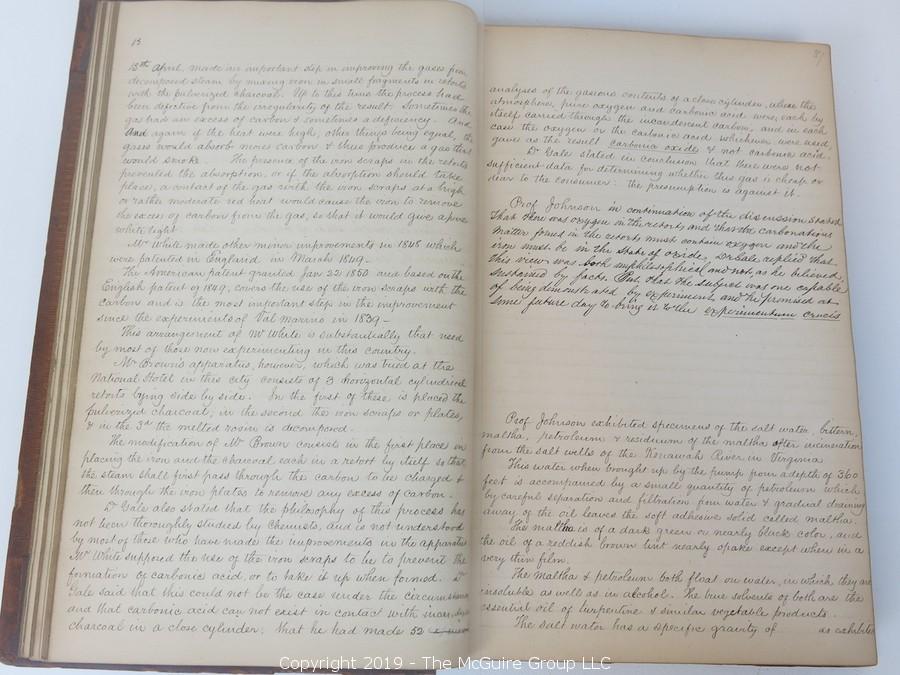 13
13th April, made an important step in improving the gases from
decomposed steam by mixing iron in small fragments in retorts
with the pulverized charcoal. Up to this time the process had
been defective from the irregularity of the result. Sometimes the
gas had an excess of carbon & sometimes a deficiency. And
And again if the heat were high, other things being equal, the
gases would absorb more carbon & thus produce a gas that
would smoke. The presence of the iron scraps in the retorts
prevented the absorption, or if the absorption should take
place, a contact of the gas with the iron scraps at a bright
or rather moderate red heat would cause the iron to remove
the excess of carbon from the gas, so that it would give a pure
white light.
Mr White made other minor improvements in 1848 which
were patented in England in March 1849.
The American patent granted Jan 22 1850 and based on the
English patent of 1849, covers the use of the iron scraps with the
carbon and is the most important step in the improvement
since the experiments of Val Marino in 1839.
This arrangement of Mr White is substantially that used
by most of those now experimenting in this country.
Mr Brown's apparatus, however, which was tried at the
National Hotel in this city consists of 3 horizontal cylindrical
retorts lying side by side. In the first of these is placed the
pulverized charcoal, in the second the iron scraps or plates,
& in the 3d the melted rosin is decomposed.
The modification of Mr Brown consists in the first place in
placing the iron and the charcoal each in a retort by itself so that
the steam shall first pass through the carbon to be charged &
then through the iron plates to remove any excess of carbon.
Dr Gale also stated that the philosophy of this process has
not been thoroughly studied by Chemists, and is not understood
by most of those who have made the improvements in the apparatus
Mr White supposed the use of the iron scraps to be to prevent the
formation of carbonic acid, or to take it up when formed. Dr
Gale said that this could not be the case under the circumstances
and that carbonic acid can not exist in contact with
charcoal in a close cylinder; that he had made 52
analyses of the gaseous contents of a close cylinder, where the
atmosphere, pure oxygen and carbonic acid were, each by
itself carried through the incandescent carbon, and in each
case the oxygen or the carbonic acid whichever were used,
gave as the result carbonic oxide & not carbonic acid.
Dr Gale stated in conclusion that there were not
sufficient data for determining whether this gas is cheap or
dear to the consumer: the presumption is against it.
Prof Johnson in continuation of the discussion stated
that there was oxygen in the retorts and that the carbonations
matter found in the retorts must contain oxygen and the
iron must be in the state of oxide, Dr Gale replied that
this view was both unphilosophical and not, as he believed,
sustained by facts, But, that the subject was one capable
of being demonstrated by experiment, and he promised at
some future day to bring it to the experimentum crucis
Prof Johnson exhibited specimens of the salt water, bittern,
maltha, petroleum & residuum of the maltha after incineration
from the salt wells of the Kenawah River in Virginia
This water when brought up by the pump from a depth of 360
feet is accompanied by a small quantity of petroleum which
by careful separation and filtration from water & gradual draining
away of the oil leaves the soft adhesive solid called maltha.
The maltha is of a dark green or nearly black color, and
the oil of a reddish brown tint nearly opake except when in a
very thin film.
The maltha & petroleum both float on water, in which they are
insoluble as well as in alcohol. The true solvents of both are the
essential oil of turpentine & similar vegetable products.
The salt water has a specific gravity of as exhibited
Copyright 2019 - The McGuire Group LLC